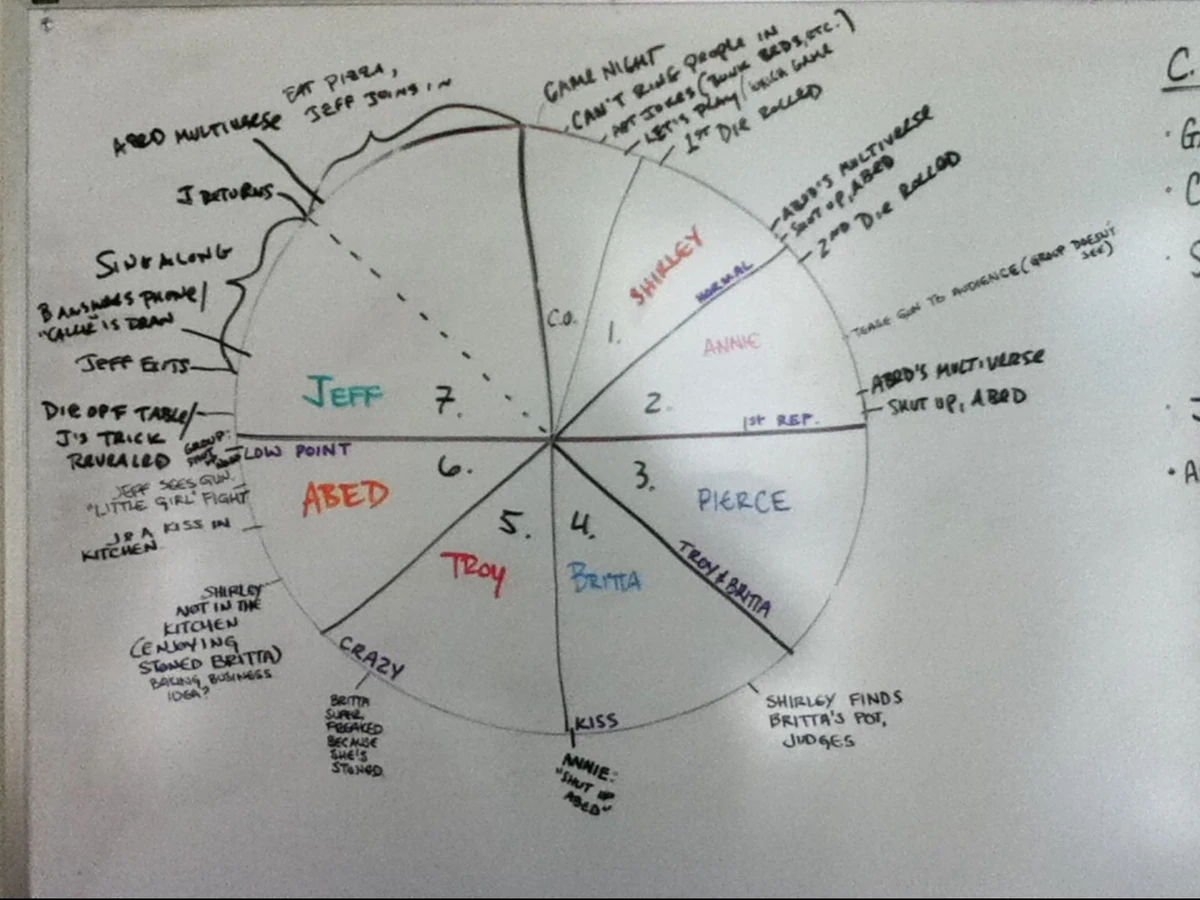 GAME NIGHT
CAN'T RING PEOPLE IN
APT JOKES (BUNK BEDS, ETC.)
LET'S PLAY / WHICH GAME
1ST DIE ROLLED
ABED'S MULTIVERSE
SHUT UP, ABED
2ND DIE ROLLED
TEASE GUN TO AUDIENCE (GROUP DOESN'T
SEE)
ABED'S MULTIVERSE
SHUT UP, ABED
SHIRLEY FINDS
BRITTA'S POT,
JUDGES
ANNIE:
"SHUT UP
ABED"
BRITTA
SUPER
FREAKED
BECAUSE
SHE'S
STONED
SHIRLEY
NOT IN THE
KITCHEN
(ENJOYING
STONED BRITTA)
BAKING BUSINESS
IDEA?
J & A KISS IN
KITCHEN
JEFF SEES GUN.
"LITTLE GIRL" FIGHT
GROUP:
DIE OFF TABLE/
J'S TRICK
REVEALED
JEFF EXITS
B ANSWERS PHONE/
"CALLER" IS DEAN
SING ALONG
J RETURNS
ABED MULTIVERSE
EAT PIZZA,
JEFF JOINS IN
C.O.
1.
SHIRLEY
NORMAL
2.
ANNIE
1ST REP.
3.
PIERCE
TROY & BRITTA
4.
BRITTA
KISS
5.
TROY
CRAZY
6.
ABED
LOW POINT
7.
JEFF
C.